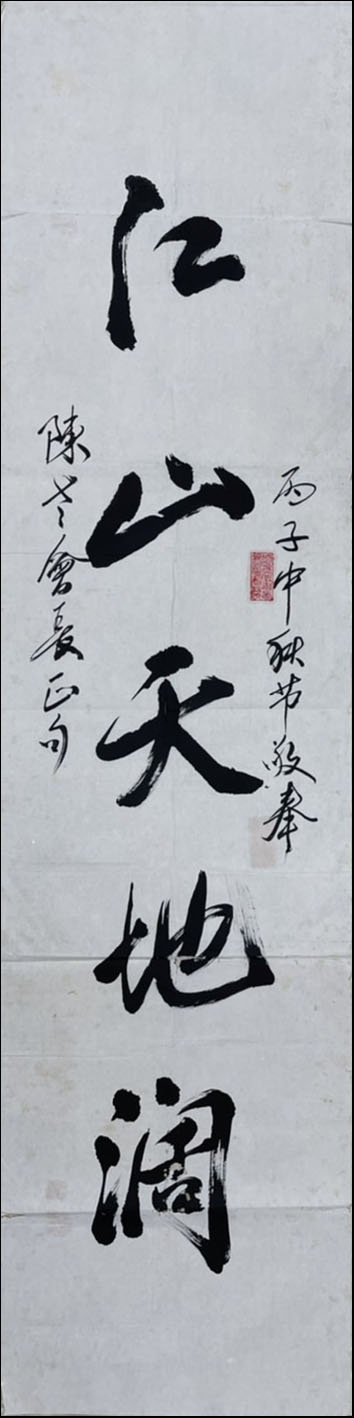 丙子中秋节敬奉
江山天地阔
陳老會長正句